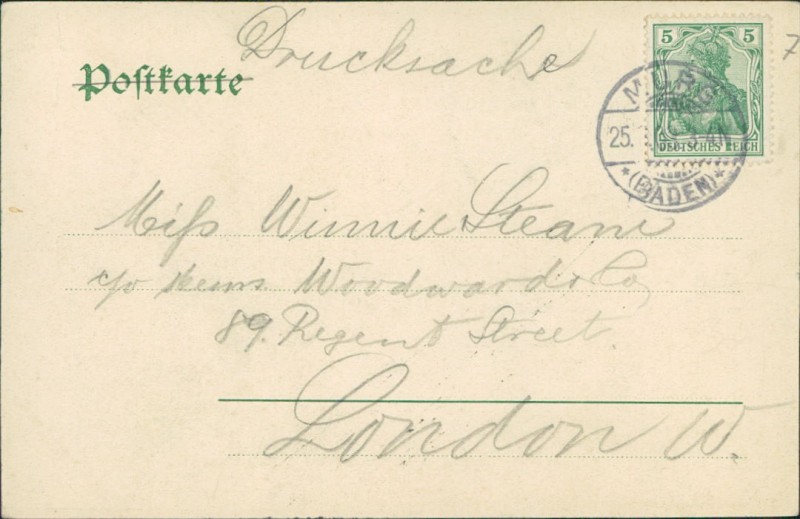 Drucksache
Postkarte
5 5
DEUTSCHES REICH
MURG
25.
(BADEN)
7
Miss Winnie Steane
c/o Messrs. Woodward & Co
89. Regent Street.
London W.